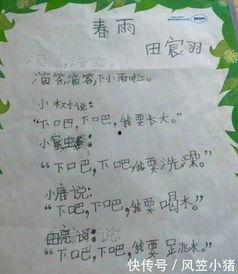 春雨
田宸羽
滴答,滴答,下小雨啦。
小树说:
"下吧,下吧,我要长大。"
小
"下吧,下吧,我要洗澡。"
小鹿说:
"下吧,下吧,我要喝水。"
说:
"下吧,下吧,我要 水。"
快传号/风笠小猪